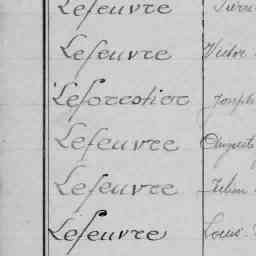 Lefeuvre Pierre
Lefeuvre Victor
Leforestier Joseph
Lefeuvre Auguste
Lefeuvre Julien
Lefeuvre Louis